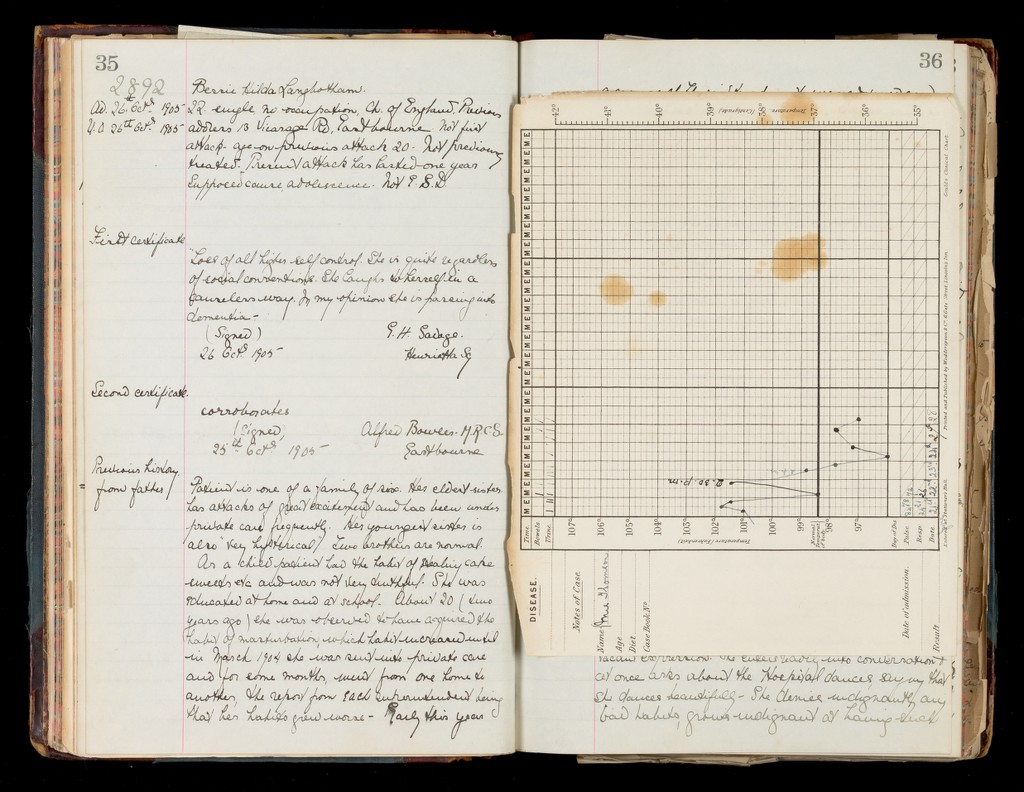 35
2892
Ad. 26th Octr 1905
U.O 26th Octr 1905
Bernie Hilda Langbotham.
22 single no occupation, Ch. of England Previous
address 13 Vicarage Rd, Eastbourne. Not first
attack. age on previous attack 20. Not previously
treated. Present attack has lasted one year
Supposed cause, adolescence. Not E. S. D
First certificate
"Loss of all higher self control. She is quite regardless
of social conventions. She laughs to herself in a
causeless way. In my opinion she is passing into
dementia-
(Signed) G. H. Savage.
26 Octr 1905 Henrietta Sq
Second certificate.
corroborates
(Signed) Alfred Bowles. MRCS.
25th Octr 1905 Eastbourne
Previous history
from father
Patient is one of a family of six. Her eldest sister
has attacks of great excitement and has been under
private care frequently. Her youngest sister is
also "Very hysterical". Two brothers are normal.
As a child patient had the habit of stealing cake
sweets etc and was not very truthful. She was
educated at home and at school. About 20 (two
years ago) she was observed to have acquired the
habit of masturbation, which habit increased until
in March 1904 she was sent into private care
and for some months, went from one home to
another, the report from each superintendent being
that her habits grew worse - Early this year
36
42°
41°
40°
39°
38°
37°
36°
35°
Temperature (Centigrade)
Time.
Bowels.
Urine.
M E M E M E M E M E M E M E M E M E M E M E M E M E M E M E M E M E M E M E M E M E
107°
106°
105°
104°
103°
102°
101°
100°
99°
98°
97°
Temperature (Fahrenheit)
2.30 p.m
Day of Dis.
Pulse.
Resp.
Date.
Printed and Published by
DISEASE.
Notes of Case.
Name
Age
Diet
Case Book No
Date of admission.
Result
facial expression. She enters readily into conversation &
at once asks about the Hospital dances saying that
she dances beautifully - She denies indignantly any
bad habits, grows indignant at having such